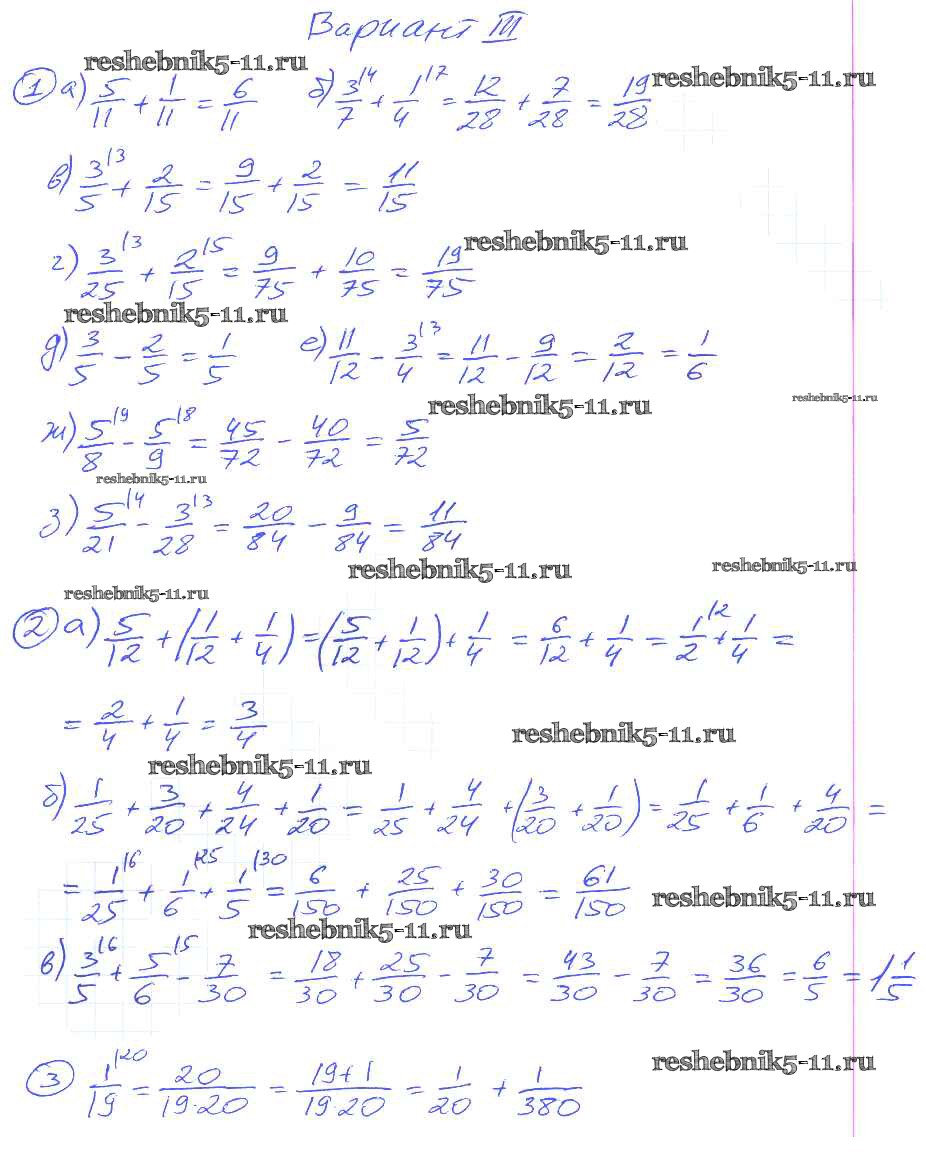 Вариант III
reshebnik5-11.ru
reshebnik5-11.ru
① а) 5/11 + 1/11 = 6/11 б) 3/7 \4 + 1/4 \7 = 12/28 + 7/28 = 19/28
в) 3/5 \3 + 2/15 = 9/15 + 2/15 = 11/15
reshebnik5-11.ru
г) 3/25 \3 + 2/15 \5 = 9/75 + 10/75 = 19/75
reshebnik5-11.ru
д) 3/5 - 2/5 = 1/5 е) 11/12 - 3/4 \3 = 11/12 - 9/12 = 2/12 = 1/6
reshebnik5-11.ru
reshebnik5-11.ru
ж) 5/8 \9 - 5/9 \8 = 45/72 - 40/72 = 5/72
reshebnik5-11.ru
з) 5/21 \4 - 3/28 \3 = 20/84 - 9/84 = 11/84
reshebnik5-11.ru
reshebnik5-11.ru
reshebnik5-11.ru
② а) 5/12 + (1/12 + 1/4) = (5/12 + 1/12) + 1/4 = 6/12 + 1/4 = 1/2 \2 + 1/4 =
= 2/4 + 1/4 = 3/4
reshebnik5-11.ru
reshebnik5-11.ru
б) 1/25 + 3/20 + 4/24 + 1/20 = 1/25 + 4/24 + (3/20 + 1/20) = 1/25 + 1/6 + 4/20 =
= 1/25 \6 + 1/6 \25 + 1/5 \30 = 6/150 + 25/150 + 30/150 = 61/150
reshebnik5-11.ru
reshebnik5-11.ru
в) 3/5 \6 + 5/6 \5 - 7/30 = 18/30 + 25/30 - 7/30 = 43/30 - 7/30 = 36/30 = 6/5 = 1 1/5
reshebnik5-11.ru
③ 1/19 \20 = 20/19·20 = 19+1/19·20 = 1/20 + 1/380